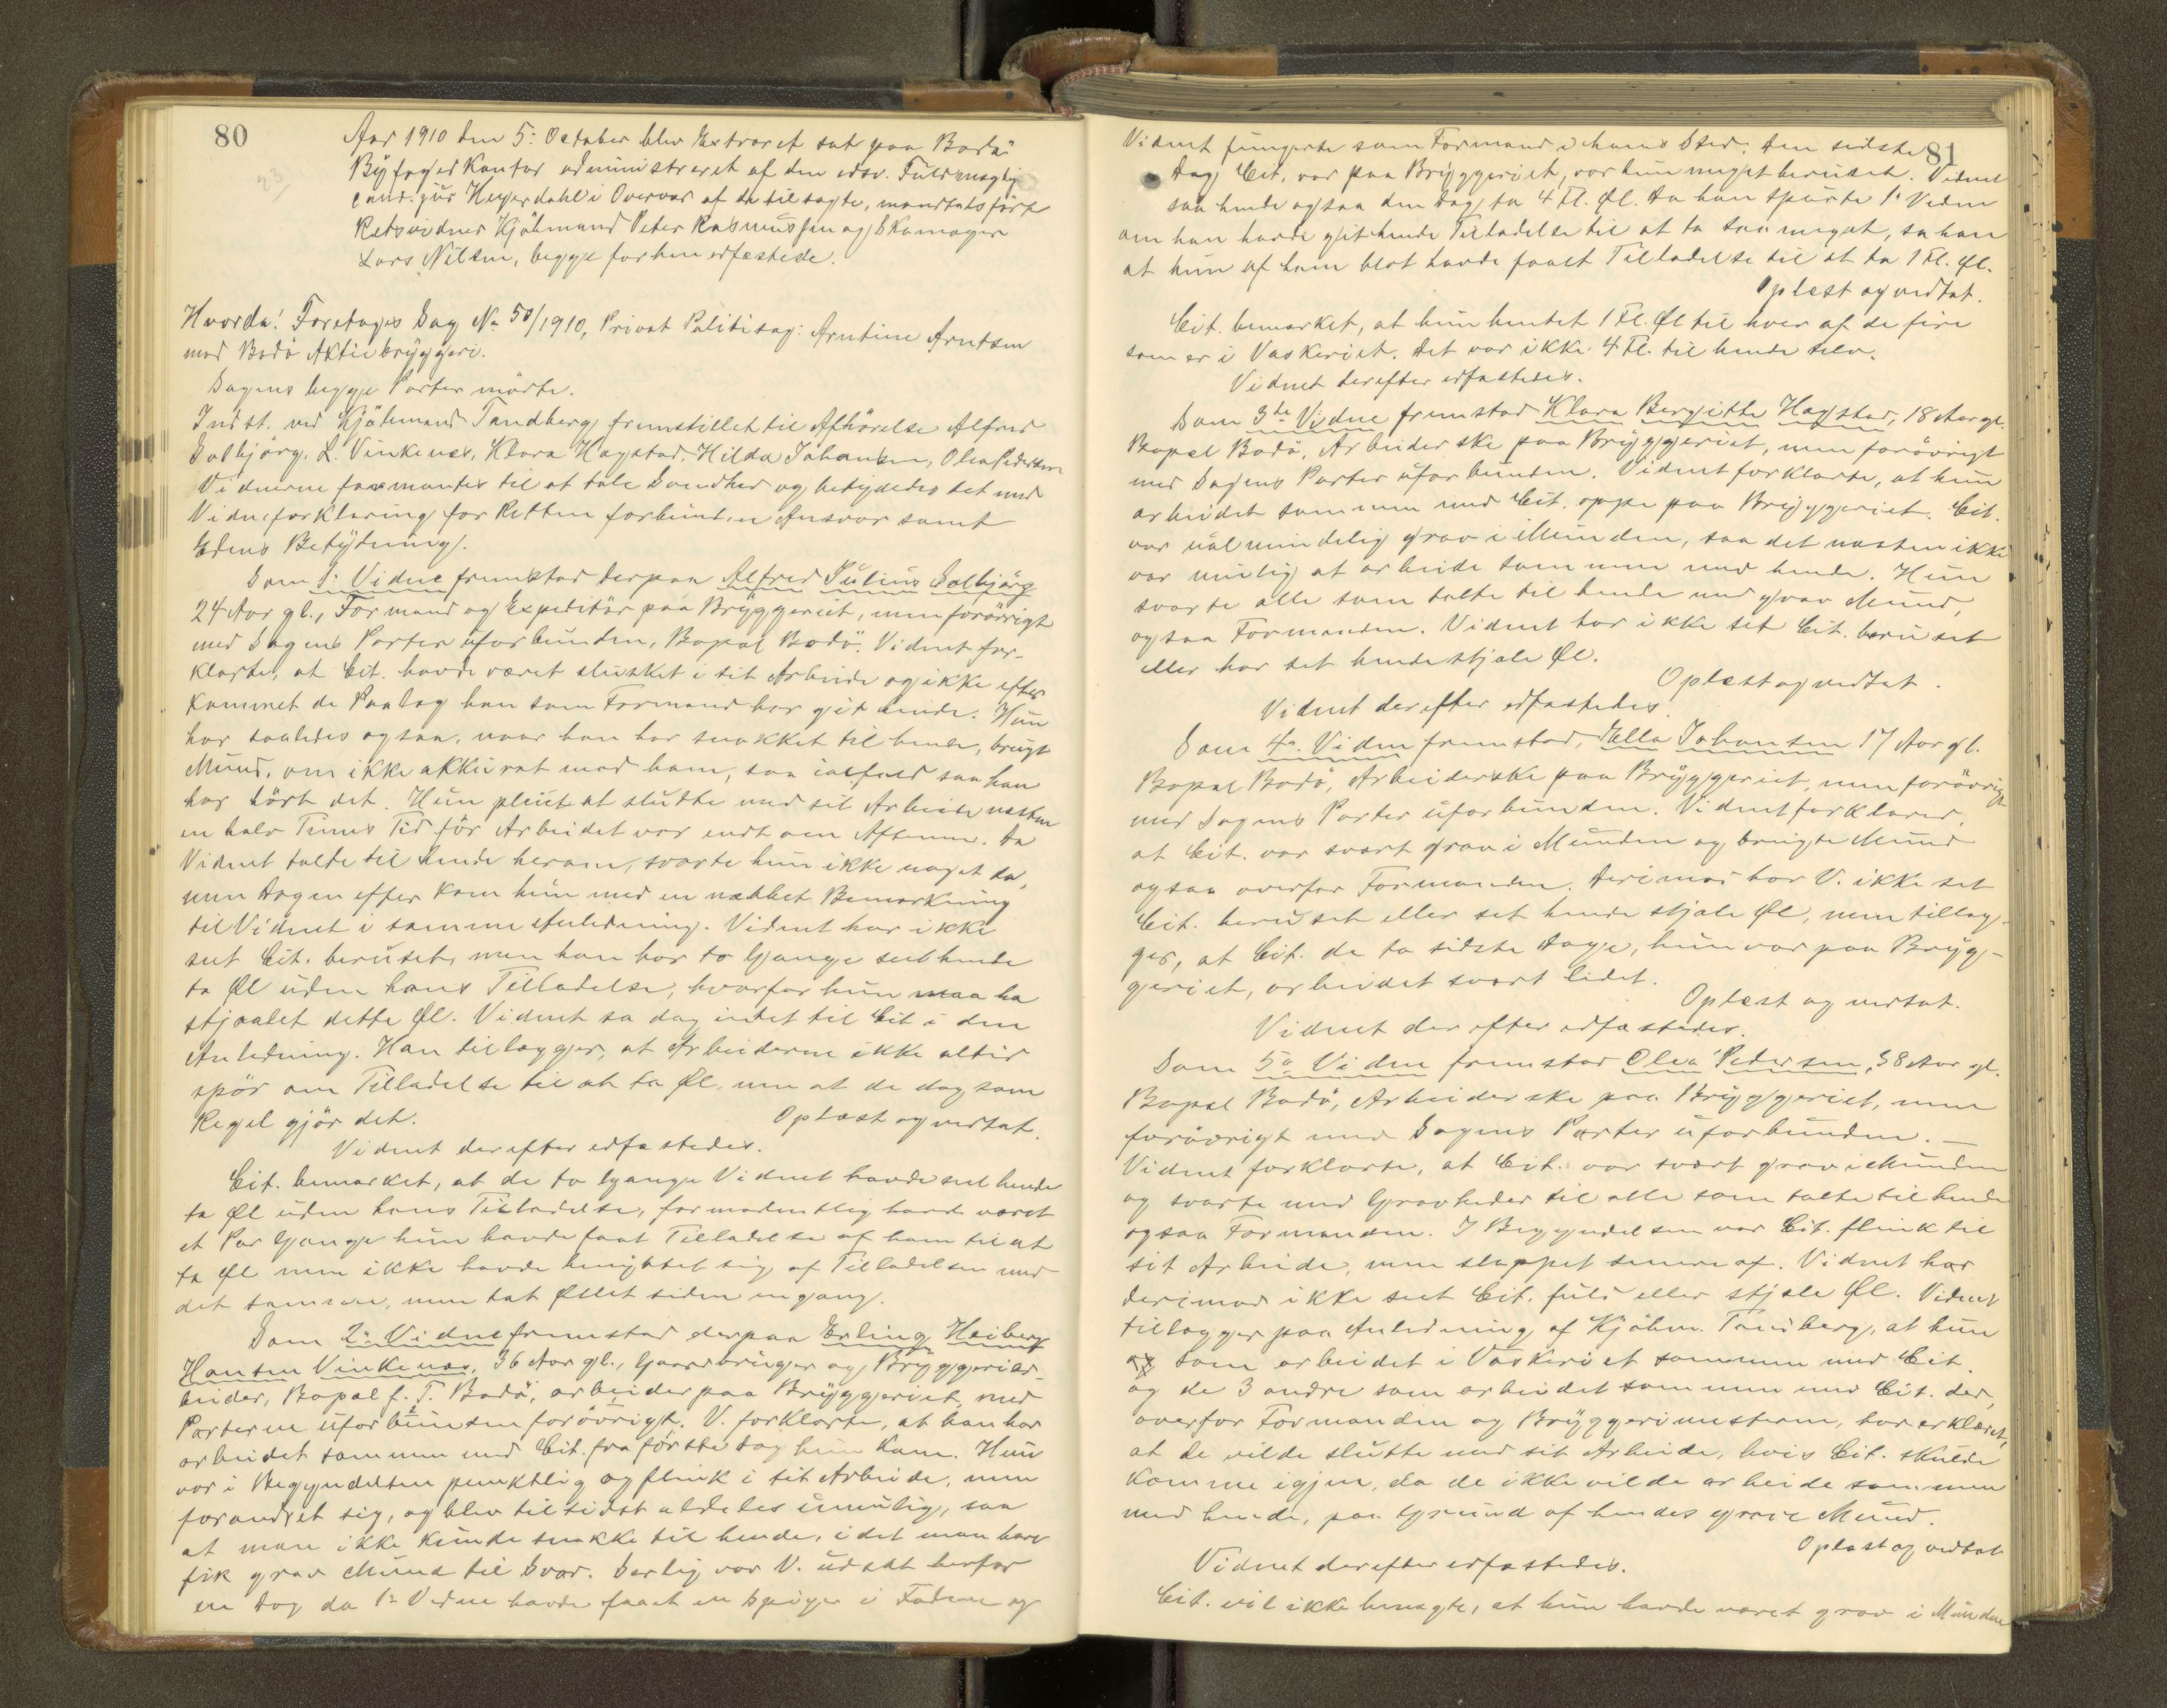 80
Aar 1910 den 5: October blev Extraret sat paa Bodø
Byfogedkontor administreret af den edsv. Fuldmægtig
cand. jur Heyerdahl i Overvær af de tilsagte, mandtalsførte
Retsvidner Kjøbmand Peter Rasmussen og Skomager
Lars Nilsen, begge forhen edfæstede.
Hvorda: Foretages Sag No 50/1910, Privat Politisag: Arntine Arntsen
mod Bodø Aktiebryggeri.
Sagens begge Parter mødte.
Indst. ved Kjøbmand Tandberg fremstillet til Afhørelse Alfred
Solbjørg, L. Vinkenes, Klara Hagstad, Hilda Johansen, Olea Pedersen
Vidnerne formantes til at tale Sandhed og betydedes det med
Vidneforklaring for Retten forbundne Ansvar samt
Edens Betydning.
Som 1: Vidne fremstod derpaa Alfred Julius Solbjørg
24 Aar gl., Formand og Expeditør paa Bryggeriet, men forøvrigt
med Sagens Parter uforbunden, Bopæl Bodø. Vidnet for-
klarte, at Cit. havde været slusket i sit Arbeide og ikke efter
kommet de Paalæg han som Formand har git hende. Hun
har saaledes ogsaa, naar han har snakket til hende, brugt
Mund, om ikke akkurat mod ham, saa ialfald saa han
har hørt det. Hun pleiet at slutte med sit Arbeide næsten
en halv Times Tid før Arbeidet var endt om Aftenen. Da
Vidnet talte til hende herom, svarte hun ikke noget da,
men Dagen efter kom hun med en næbbet Bemærkning
til Vidnet i samme Anledning. Vidnet har ikke
set Cit. beruset, men han har to Gange set hende
ta Øl uden hans Tilladelse, hvorfor hun maa ha
stjaalet dette Øl. Vidnet sa dog intet til Cit i den
Anledning. Han tillægger, at Arbeiderne ikke altid
spør om Tilladelse til at ta Øl, men at de dog som
Regel gjør det. Oplæst og vedtat.
Vidnet derefter edfæstedes.
Cit. bemærket, at de to Gange Vidnet havde set hende
ta Øl uden hans Tilladelse, formodentlig havde været
et Par Gange hun havde faat Tilladelse af ham til at
ta Øl men ikke havde benyttet sig af Tilladelsen med
det samme, men tat Øllet siden engang.
Som 2n Vidne fremstod derpaa Erling Heiberg
Hansen Vinkenes, 36 Aar gl., Gaardbruger og Bryggeriar-
beider, Bopæl f. T. Bodø, arbeider paa Bryggeriet, med
Parterne uforbunden forøvrigt. V. forklarte, at han har
arbeidet sammen med Cit. fra første Dag hun kam. Hun
var i Begyndelsen punktlig og flink i sit Arbeide, men
forandret sig, og blev tilsidst aldeles umulig, saa
at man ikke kunde snakke til hende, idet man bare
fik grov Mund til Svar. Særlig var V. udsat herfor
en Dag da 1n Vidne havde faaet en Spiger i Foden og
81
Vidnet fungerte som Formand i hans Sted. Den sidste
Dag Cit. var paa Bryggeriet, var hun meget beruset. Vidnet
saa hende ogsaa den Dag ta 4 Fl. Øl. Da han spurte 1n Vidne
om han havde git hende Tilladelse til at ta saa meget, sa han
at hun af ham blot havde faaet Tilladelse til at ta 1 Fl. Øl.
Oplæst og vedtat.
Cit. bemærket, at hun hentet 1 Fl. Øl til hver af de fire
som er i Vaskeriet. Det var ikke 4 Fl. til hende selv.
Vidnet derefter edfæstedes.
Som 3die Vidne fremstod Klara Bergitte Hagstad, 18 Aar gl.
Bopæl Bodø, Arbeiderske paa Bryggeriet, men forøvrigt
med Sagens Parter uforbunden. Vidnet forklarte, at hun
arbeidet sammen med Cit. oppe paa Bryggeriet. Cit.
var ualmindelig grov i Munden, saa det næsten ikke
var mulig at arbeide sammen med hende. Hun
svarte alle som talte til hende med grov Mund,
ogsaa Formanden. Vidnet har ikke set Cit. beruset
eller har set hende stjæle Øl.
Oplæst og vedtat.
Vidnet derefter edfæstedes.
Som 4n Vidne fremstod, Hilda Johansen 17 Aar gl.
Bopæl Bodø, Arbeiderske paa Bryggeriet, men forøvrigt
med Sagens Parter uforbunden. Vidnet forklarer,
at Cit. var svært grov i Munden og brugte Mund
ogsaa overfor Formanden. Derimod har V. ikke set
Cit. beruset eller set hende stjæle Øl, men tillæg-
ger, at Cit. de to sidste Dage, hun var paa Bryg-
geriet, arbeidet svært lidet.
Oplæst og vedtat.
Vidnet derefter edfæstedes.
Som 5n Vidne fremstod Olea Pedersen, 38 Aar gl.
Bopæl Bodø, Arbeiderske paa Bryggeriet, men
forøvrigt med Sagens Parter uforbunden. —
Vidnet forklarte, at Cit. var svært grov i Munden
og svarte med Grovheder til alle som talte til hende
ogsaa Formanden. I Begyndelsen var Cit. flink til
sit Arbeide, men slappet senere af. Vidnet har
derimod ikke seet Cit. fuld eller stjæle Øl. Vidnet
tillægger paa Anledning af Kjøbm. Tandberg, at hun
som arbeidet i Vaskeriet sammen med Cit.
og de 3 andre som arbeidet sammen med Cit. der,
overfor Formanden og Bryggerimesteren, har erklæret,
at de vilde slutte med sit Arbeide, hvis Cit. skulde
komme igjen, da de ikke vilde arbeide sammen
med hende, paa Grund af hendes grove Mund.
Oplæst og vedtat
Vidnet derefter edfæstedes.
Cit. vil ikke benægte, at hun havde været grov i Munden